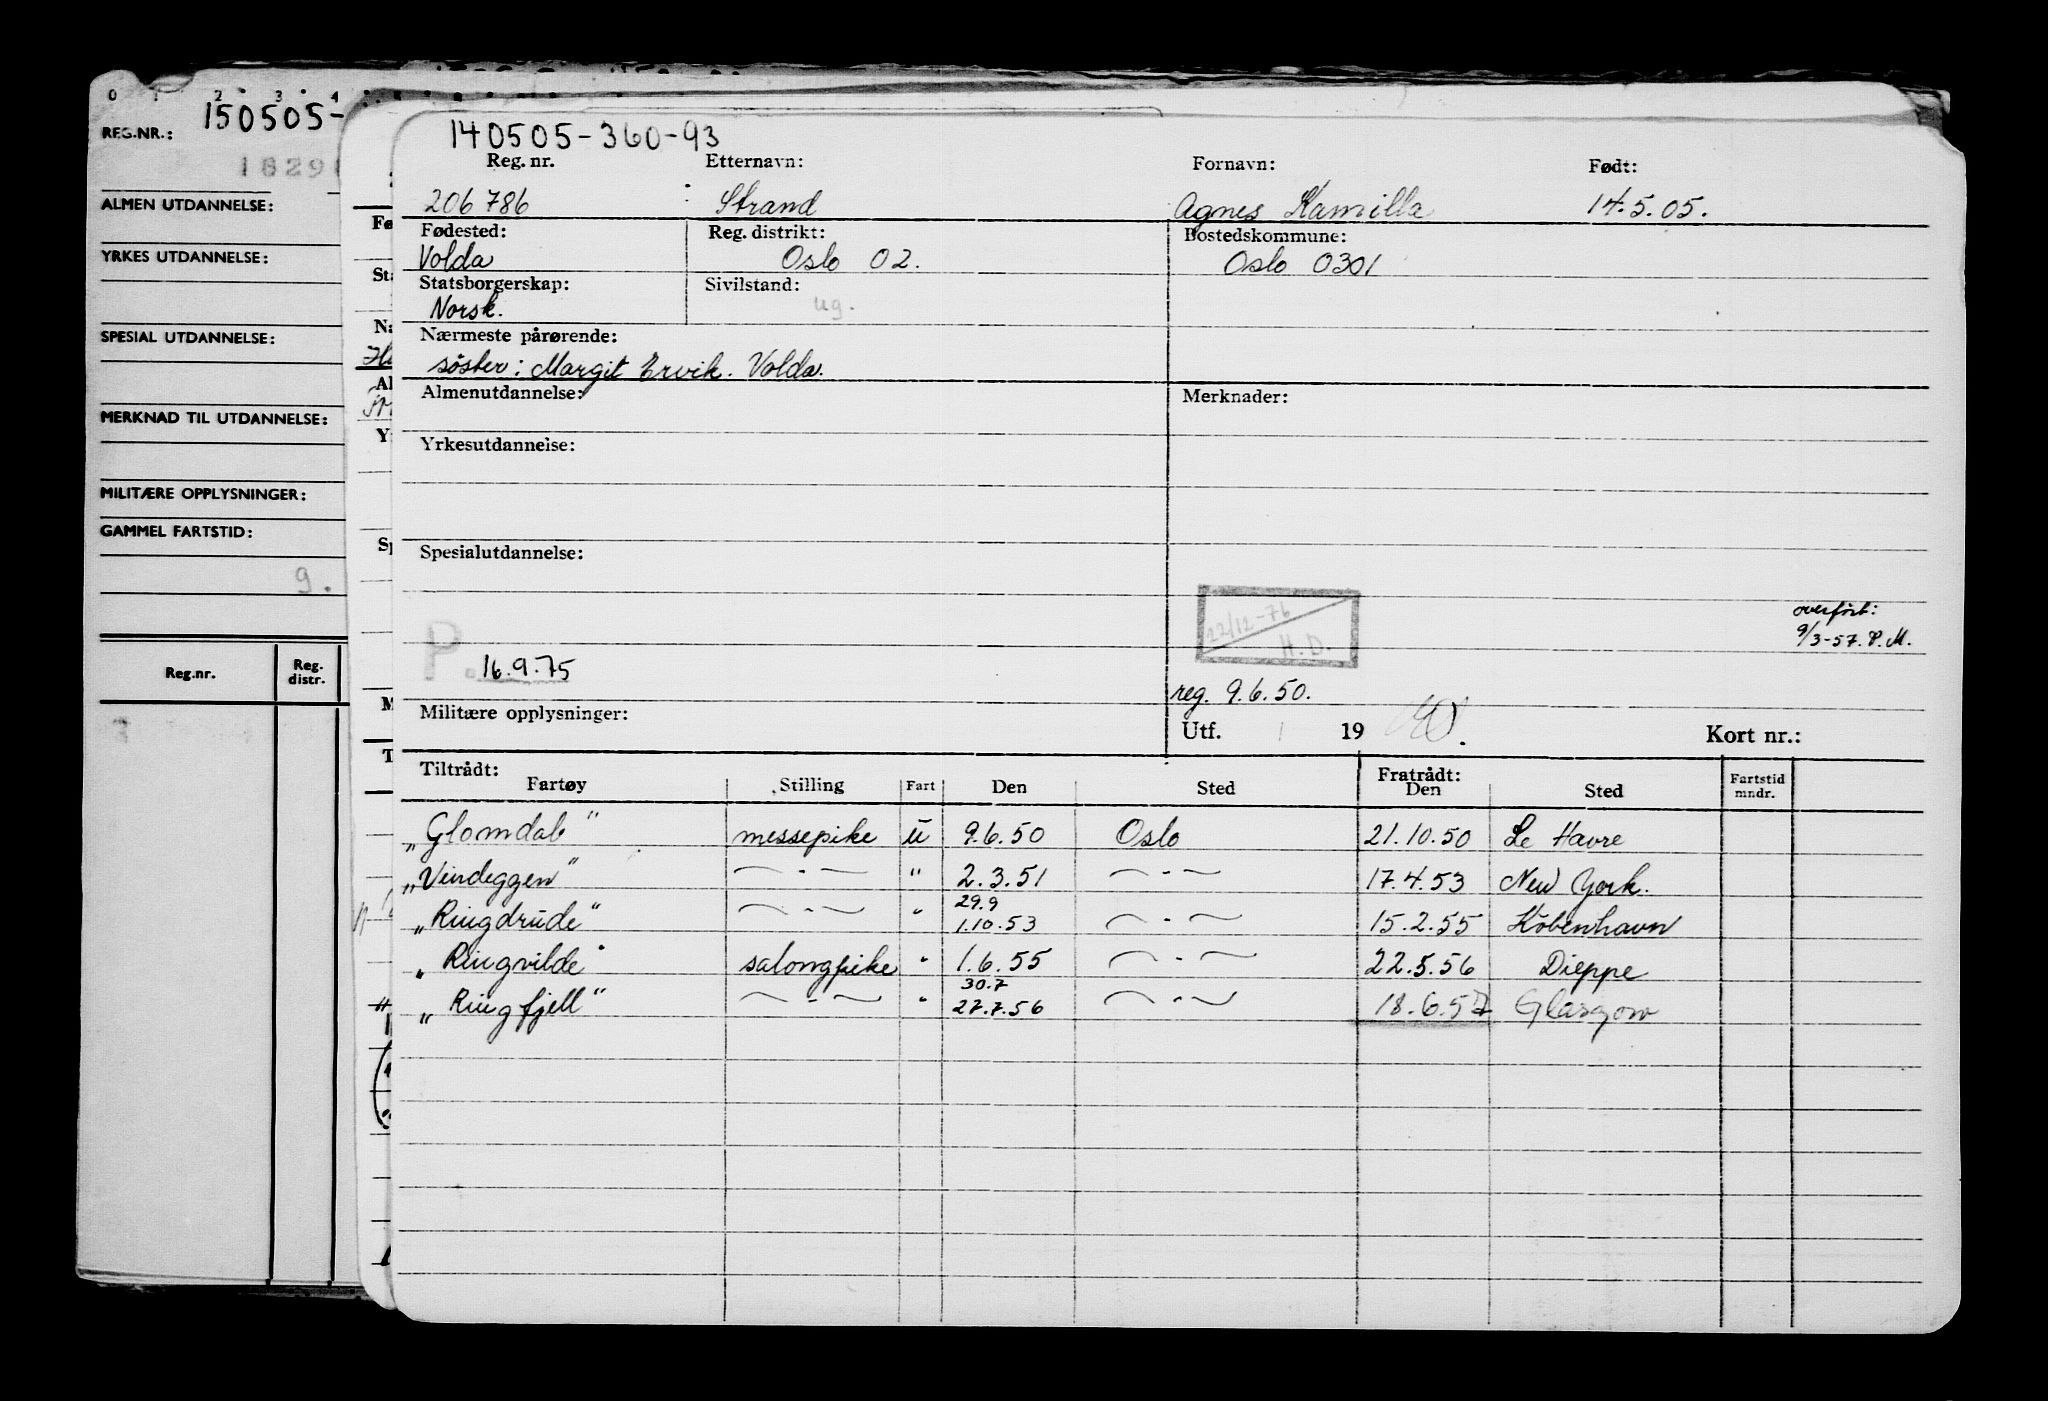 0 1 2 3 4
REG.NR.: 150505-
ALMEN UTDANNELSE:
YRKES UTDANNELSE:
SPESIAL UTDANNELSE:
MERKNAD TIL UTDANNELSE:
MILITÆRE OPPLYSNINGER:
GAMMEL FARTSTID:
g.
Reg.nr. Reg. distr.
140505-360-93
Reg. nr. Etternavn: Fornavn: Født:
206786 Strand Agnes Kamilla 14.5.05.
Fødested: Reg. distrikt: Bostedskommune:
Volda Oslo 02. Oslo 0301
Statsborgerskap: Sivilstand:
Norsk. ug.
Nærmeste pårørende:
søster: Margit Ervik. Volda.
Almenutdannelse: Merknader:
Yrkesutdannelse:
Spesialutdannelse:
22/12-76
H.D.
overført:
9/3-57. P.M.
P. 16.9.75
reg. 9.6.50.
Militære opplysninger: Utf. 19 Kort nr.:
Tiltrådt: Fratrådt:
Fartøy Stilling Fart Den Sted Den Sted Fartstid mndr.
„Glomdal" messepike ü 9.6.50 Oslo 21.10.50 Le Havre
„Vindeggen" — " — " 2.3.51 — " — 17.4.53 New York.
29.9
„Ringdrude" — " — " 1.10.53 — " — 15.2.55 København
„Ringvilde" salongpike " 1.6.55 — " — 22.5.56 Dieppe
30.7
„Ringfjell" — " — " 27.7.56 — " — 18.6.57 Glasgow